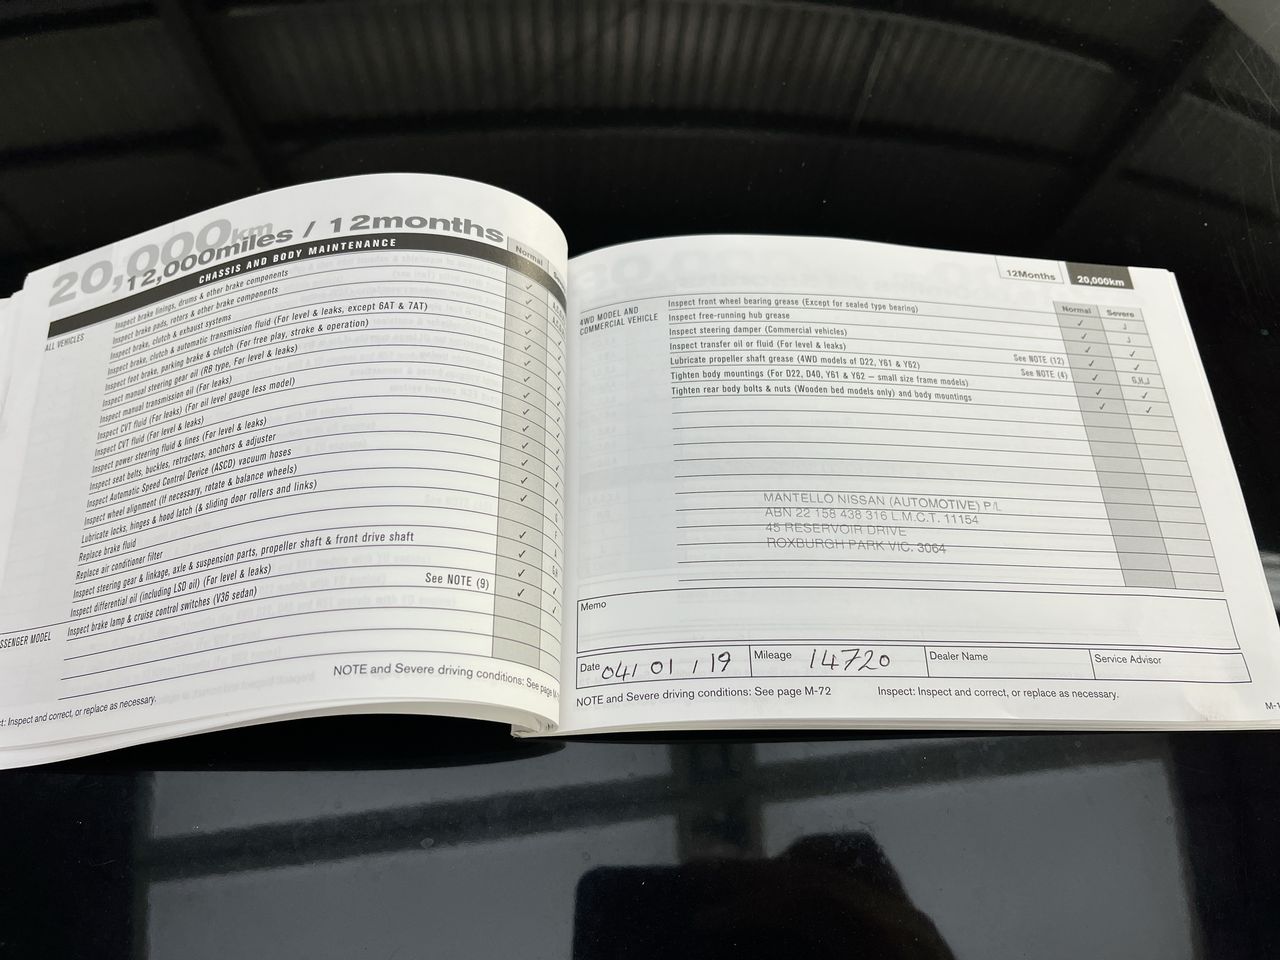 20,000km
12,000miles / 12months
CHASSIS AND BODY MAINTENANCE
Normal
ALL VEHICLES
Inspect brake linings, drums & other brake components
Inspect brake pads, rotors & other brake components
Inspect brake, clutch & exhaust systems
Inspect brake, clutch & automatic transmission fluid (For level & leaks, except 6AT & 7AT)
Inspect foot brake, parking brake & clutch (For free play, stroke & operation)
Inspect manual steering gear oil (RB type, For level & leaks)
Inspect manual transmission oil (For leaks)
Inspect CVT fluid (For leaks) (For oil level gauge less model)
Inspect CVT fluid (For level & leaks)
Inspect power steering fluid & lines (For level & leaks)
Inspect seat belts, buckles, retractors, anchors & adjuster
Inspect Automatic Speed Control Device (ASCD) vacuum hoses
Inspect wheel alignment (If necessary, rotate & balance wheels)
Lubricate locks, hinges & hood latch (& sliding door rollers and links)
Replace brake fluid
Replace air conditioner filter
Inspect steering gear & linkage, axle & suspension parts, propeller shaft & front drive shaft
Inspect differential oil (including LSD oil) (For level & leaks) See NOTE (9)
SSENGER MODEL Inspect brake lamp & cruise control switches (V36 sedan)
NOTE and Severe driving conditions: See page M
ct: Inspect and correct, or replace as necessary.
12Months 20,000km
Normal Severe
4WD MODEL AND
COMMERCIAL VEHICLE
Inspect front wheel bearing grease (Except for sealed type bearing) ✓ J
Inspect free-running hub grease ✓ J
Inspect steering damper (Commercial vehicles) ✓ ✓
Inspect transfer oil or fluid (For level & leaks) ✓ ✓
Lubricate propeller shaft grease (4WD models of D22, Y61 & Y62) See NOTE (12) ✓ G,H,J
Tighten body mountings (For D22, D40, Y61 & Y62 – small size frame models) See NOTE (4) ✓ ✓
Tighten rear body bolts & nuts (Wooden bed models only) and body mountings ✓ ✓
MANTELLO NISSAN (AUTOMOTIVE) P/L
ABN 22 158 438 316 L.M.C.T. 11154
45 RESERVOIR DRIVE
ROXBURGH PARK VIC. 3064
Memo
Date 04/01/19 Mileage 14720 Dealer Name Service Advisor
NOTE and Severe driving conditions: See page M-72 Inspect: Inspect and correct, or replace as necessary.
M-1